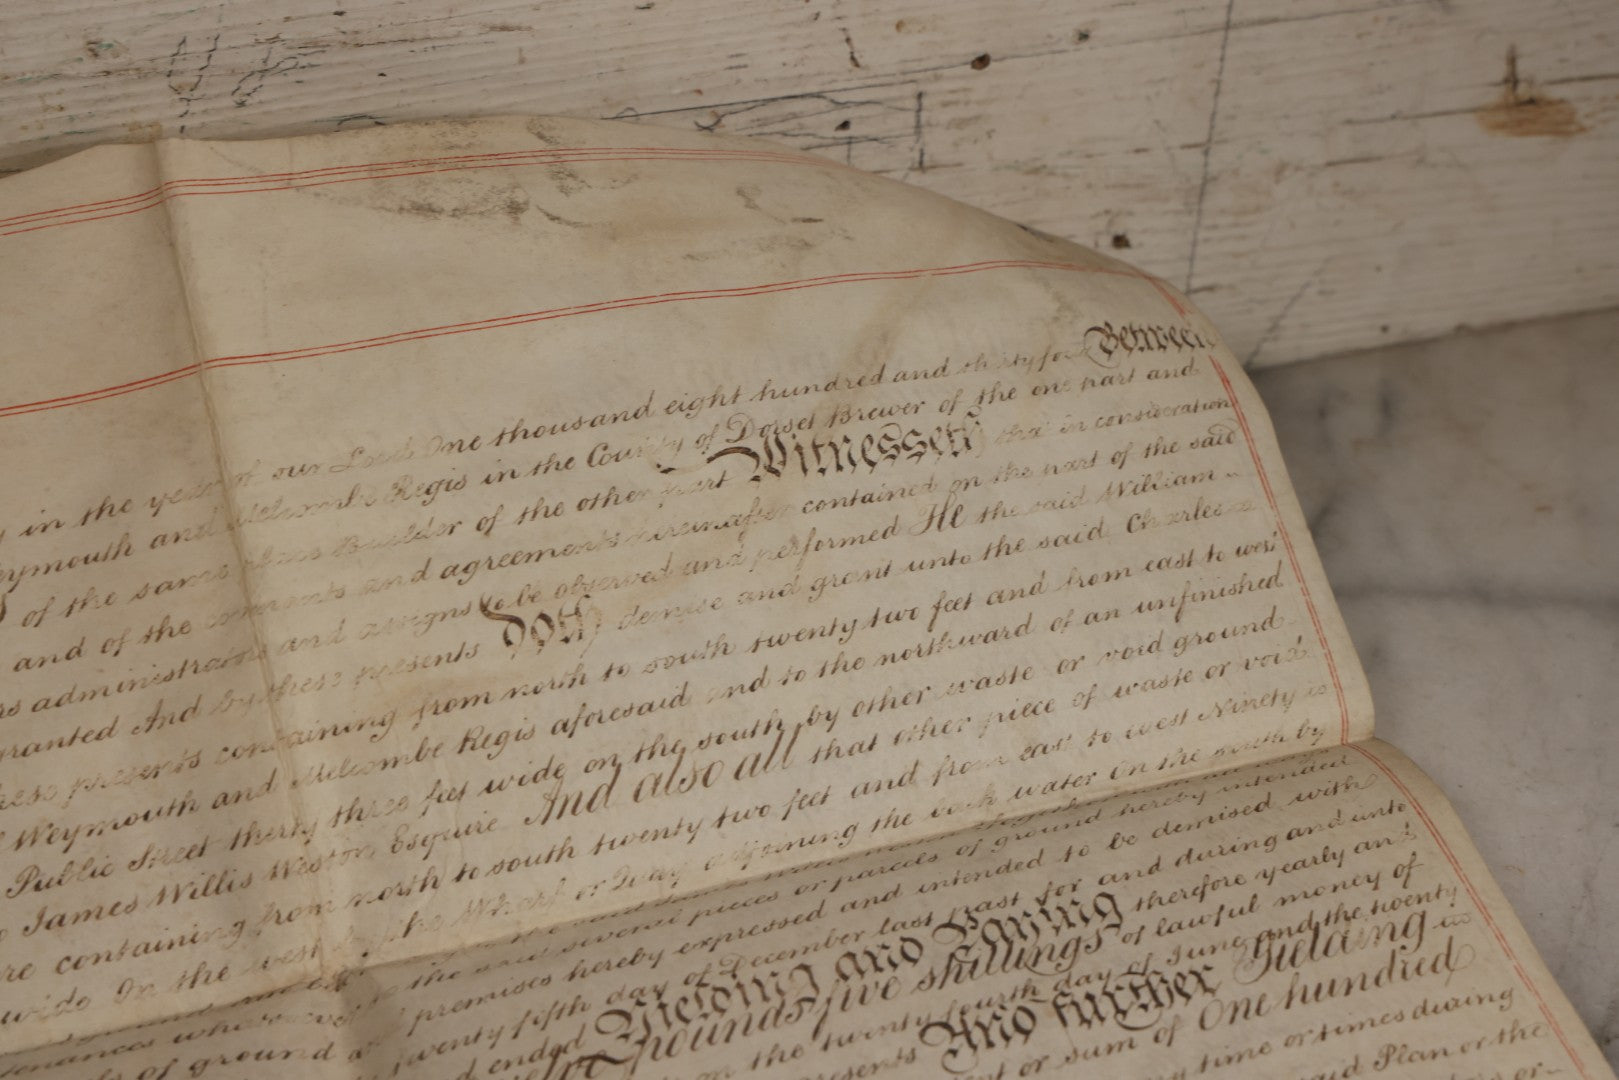 in the year of our Lord One thousand eight hundred and thirty four Between
Weymouth and Melcombe Regis in the County of Dorset Brewer of the one part and
of the same place Builder of the other part Witnesseth that in consideration
and of the covenants and agreements hereinafter contained on the part of the said
administrators and assigns to be observed and performed He the said William
granted And by these presents Doth demise and grant unto the said Charles
these presents containing from north to south twenty two feet and from east to west
Weymouth and Melcombe Regis aforesaid and to the northward of an unfinished
Public Street thirty three feet wide on the south by other waste or void ground
James Willis Weston Esquire And also all that other piece of waste or void
containing from north to south twenty two feet and from east to west Ninety
wide On the west by the Wharf or Quay adjoining the back water On the south by
the said several pieces or parcels of ground hereby intended
premises hereby expressed and intended to be demised with
of ground twenty fifth day of December last past for and during and unto
ended Yielding and Paying therefore yearly and
pounds five shillings of lawful money of
on the twenty fourth day of June and the twenty
presents And further Yielding
or sum of One hundred
time or times during
said Plan or the